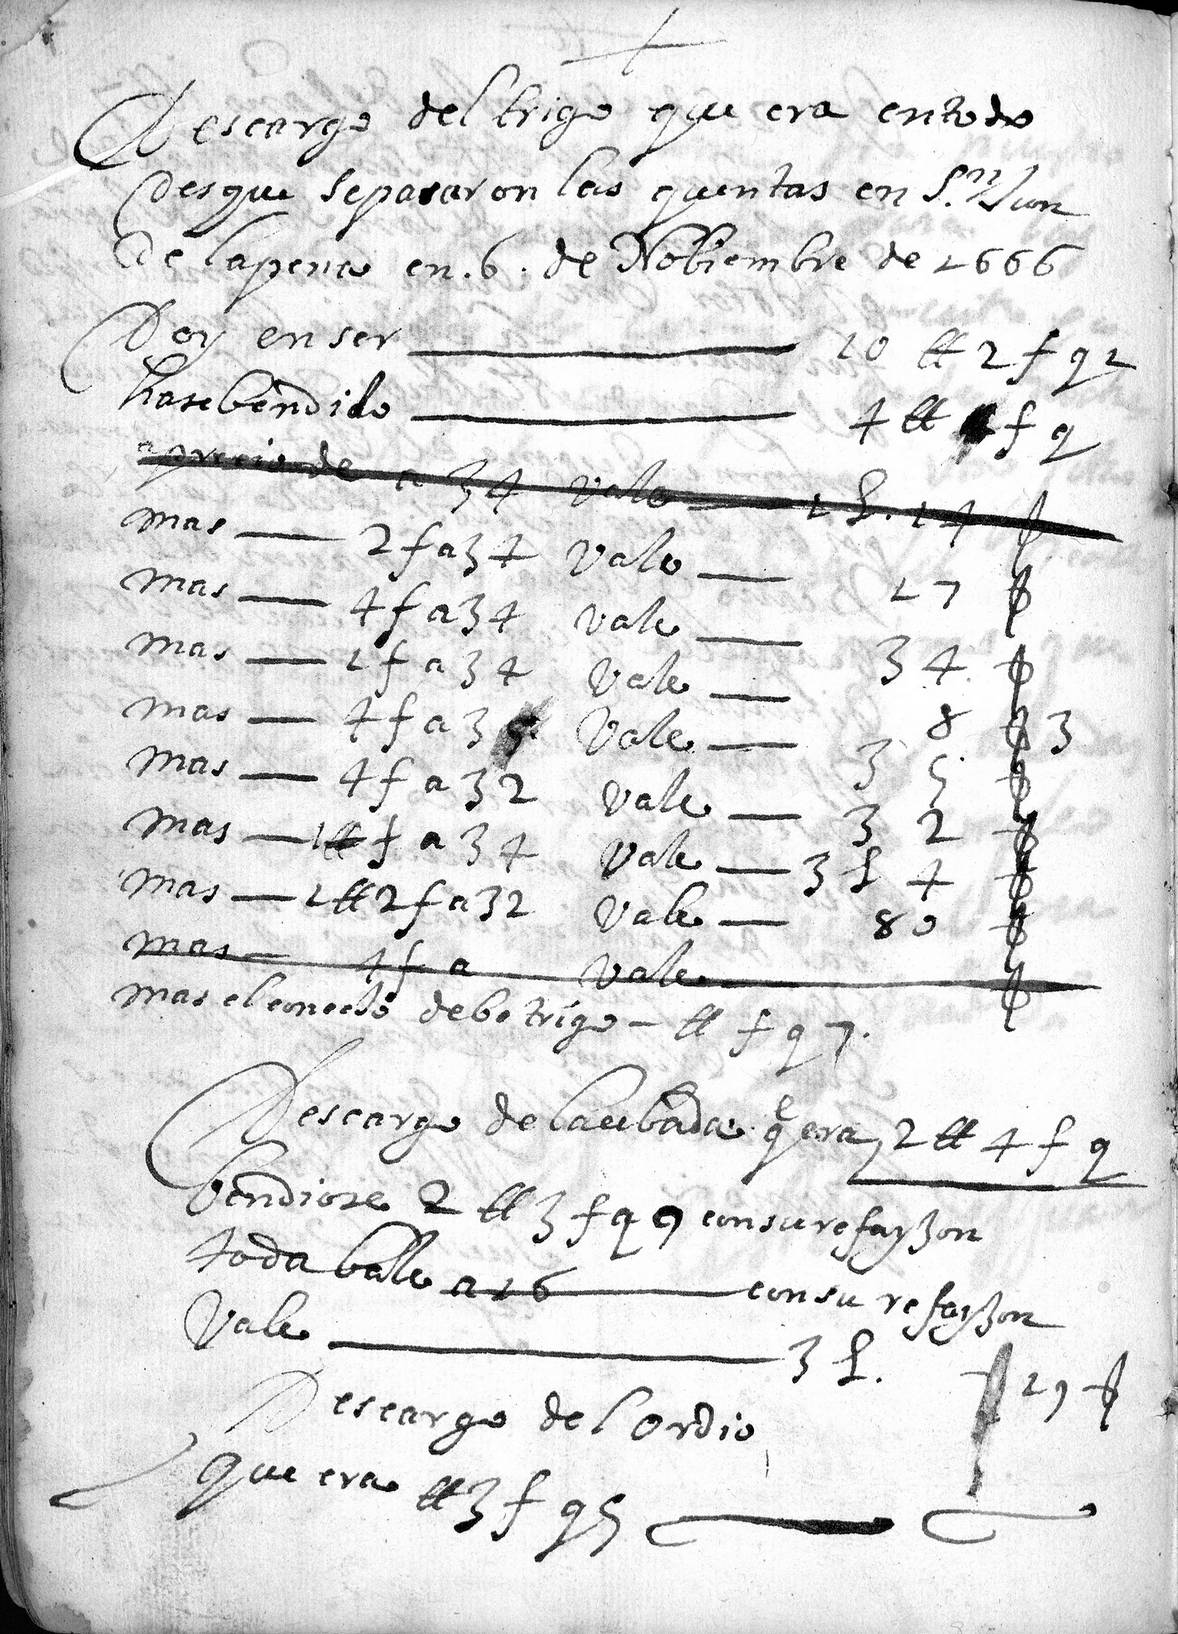 Descargo del trigo que era en todo
desque se pasaron las quentas en S.n Jun
de la pena en .6. de Nobiembre de 1666
Doy en ser 10 ȼȼ 2 f q 1
hase bendido 4 ȼȼ f q
a precio de a 34 vale 1 L. 14
mas 2 f a 34 vale 17
mas 4 f a 34 vale 34
mas 1 f a 34 vale 8 3
mas 4 f a 35 vale 35
mas 4 f a 32 vale 32
mas 1 ȼȼ f a 34 vale 3 L 4
mas 1 ȼȼ 2 f a 32 vale 80
mas 4 f a vale
mas el debe trigo ȼȼ f q 7.
Descargo de la cubada qe era 2 ȼȼ 4 f q
bendiose 2 ȼȼ 3 f q 9 con su refayzon
toda bale a 16 con su refayzon
vale 3 L. 19
Descargo del ordio
que era ȼȼ 3 f q 5